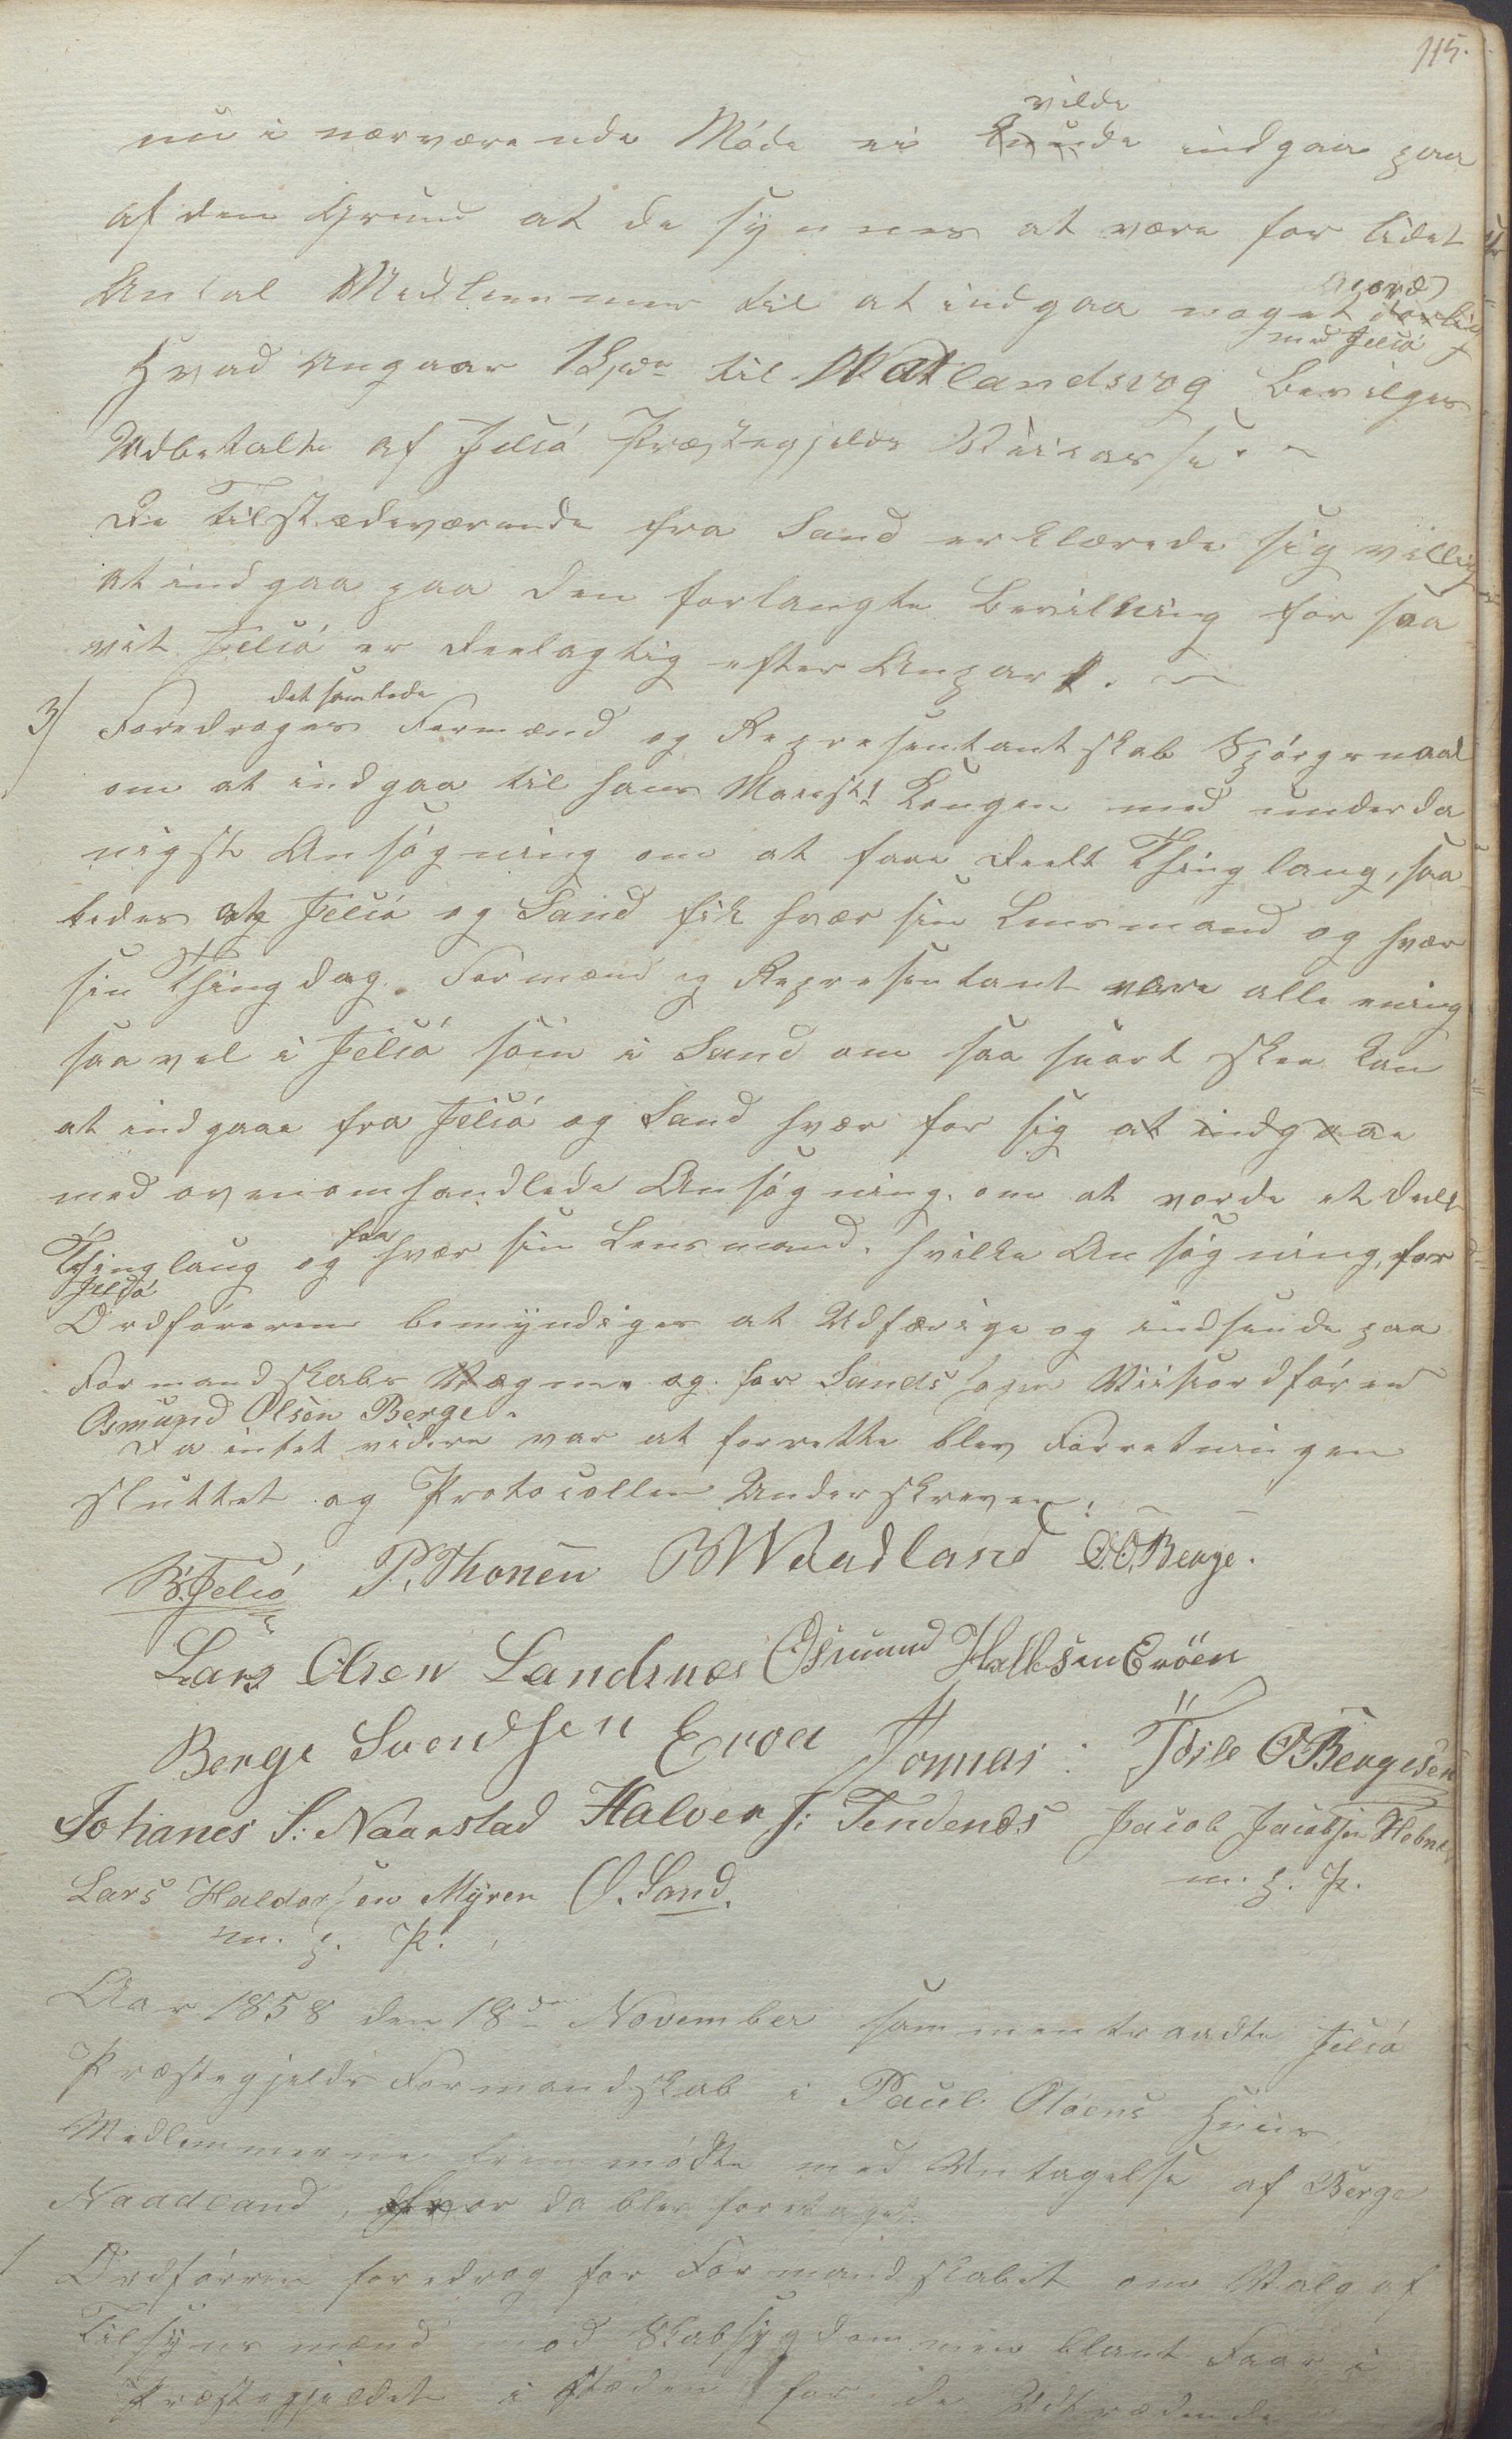 115.
vilde
nu i nærværende Möde ei kunde indgaa paa
af den Grund at de synnes at være for lidet
Antal Medlemmer til at indgaa noget
Accord
med Jelsö
Hvad angaar 1 Spd til Watlandsvog bevilges
Udbetalte af Jelsö Præstegjelds
De tilstædeværende fra Sand erklærede sig villig
at indgaa paa den forlangte Bevilking for saa
vit Jelsö er deelagtig efter Anpart.
det samlede
3/ Foredroges Formænd og Representantskab Spörgsmaal
om at indgaa til hans Maiest! Kongen med underda
nigst Ansögning om at faae deelt Thinglaug, saa
ledes at Jelsö og Sand fik hvær sin Lensmand og hvær
sin Thingdag. Formænd og Representant vare alle enig
saavel i Jelsö som i Sand om saa snart skee kan
at indgaae fra Jelsö og Sand hvær for sig at indgaae
med ovenomhandlede Ansögning. om at vorde et deelt
faa
Thinglaug og hvær sin Lensmand. hvilke Ansögning, for
Jelsö
Ordföreren bemyndiges at Udfærige og indsende paa
Formandskabs Vægne og for Sands Sogn Viisordförer
Osmund Olsen Berge.
Da intet videre var at forrette blev Forretningen
sluttet og Protocollen Underskreven.
B. Jelsö P. Thonen BWaadland O.O.Berge.
Lars Olsen Landsnæs Osmund HalksenEröen
Berge Svendsen Eroei Tommas: Törle OBergesen
Johanes S: Naarstad Halver S: Tendenes Jacob Jacobsen Hebnes
m. p. P.
Lars Haldorsen Myren O. Sand.
m. p. P.
Aar 1858 den 18de November sammentraadte Jelsö
Præstegjelds Formandskab i Paul Olöens Huus
Medlemmerne fremmödte med Untagelse af Berge
Naadland, hvor da blev foretaget.
1 Ordföreren foredrog for Formandskabet om Valg af
Tilsyns mænd med Skabsygdommen blant Faar i
Præstegjeldet i stæden for de Udtrædende